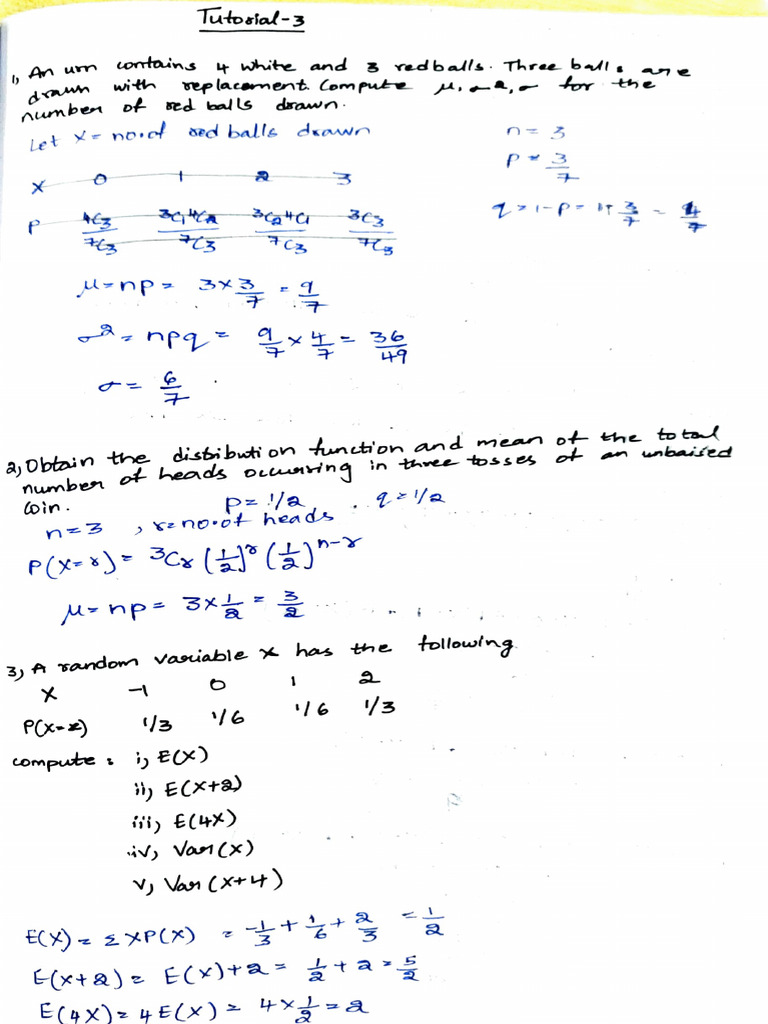 Tutorial-3
1, An urn contains 4 white and 3 red balls. Three balls are
drawn with replacement. Compute μ, σ², σ for the
number of red balls drawn.
Let X = no. of red balls drawn
n = 3
p = 3/7
q = 1 - p = 1 - 3/7 = 4/7
X 0 1 2 3
P 4C3/7C3 3C1 4C2/7C3 3C2 4C1/7C3 3C3/7C3
μ = np = 3 × 3/7 = 9/7
σ² = npq = 9/7 × 4/7 = 36/49
σ = 6/7
2, Obtain the distribution function and mean of the total
number of heads occurring in three tosses of an unbaised
coin.
p = 1/2 q = 1/2
n = 3 , r = no. of heads
P(X = r) = 3Cr (1/2)^r (1/2)^n-r
μ = np = 3 × 1/2 = 3/2
3, A random variable X has the following
X -1 0 1 2
P(X=x) 1/3 1/6 1/6 1/3
compute : i, E(X)
ii, E(X+2)
iii, E(4X)
iv, Var(X)
v, Var(X+4)
E(X) = Σ XP(X) = -1/3 + 1/6 + 2/3 = 1/2
E(X+2) = E(X)+2 = 1/2 + 2 = 5/2
E(4X) = 4E(X) = 4 × 1/2 = 2